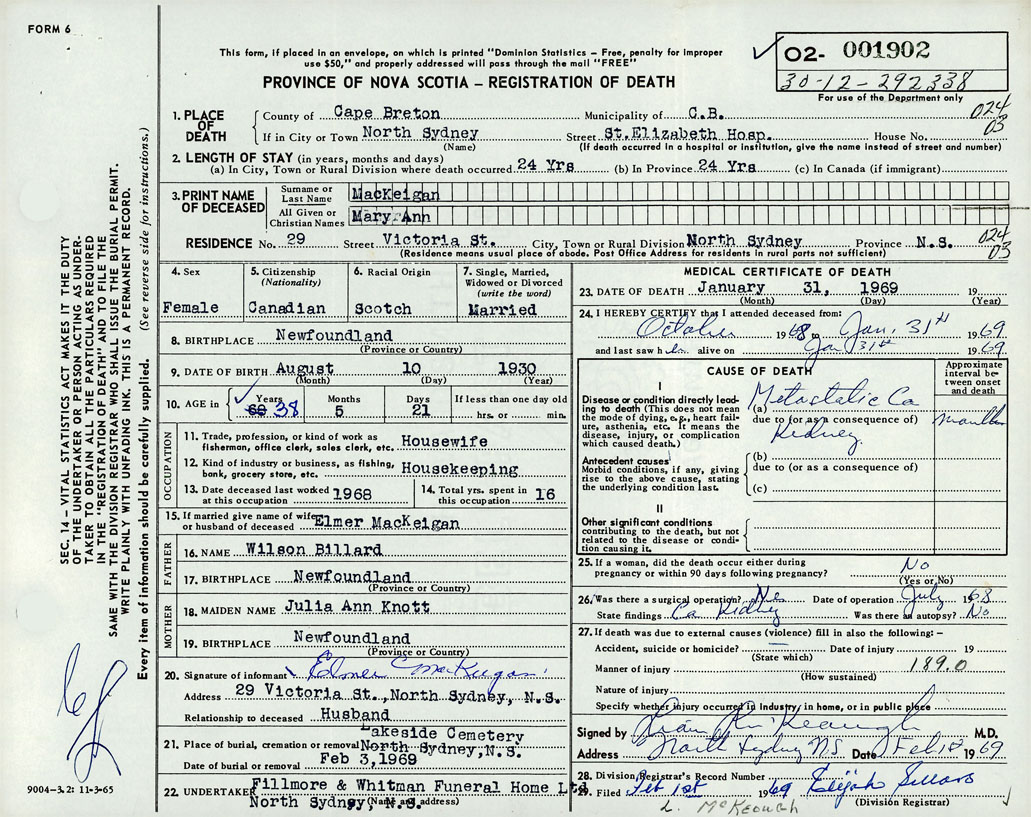 FORM 6
This form, if placed in an envelope, on which is printed "Dominion Statistics – Free, penalty for improper
use $50," and properly addressed will pass through the mail "FREE"
PROVINCE OF NOVA SCOTIA – REGISTRATION OF DEATH
✓ 02- 001902
30-12-292338
For use of the Department only
024
03
1. PLACE OF DEATH
County of Cape Breton Municipality of C.B.
If in City or Town North Sydney Street St.Elizabeth Hosp. House No.
(Name) (If death occurred in a hospital or institution, give the name instead of street and number)
2. LENGTH OF STAY (in years, months and days)
(a) In City, Town or Rural Division where death occurred 24 Yrs (b) In Province 24 Yrs (c) In Canada (if immigrant)
3. PRINT NAME OF DECEASED
Surname or Last Name MacKeigan
All Given or Christian Names Mary Ann
RESIDENCE No. 29 Street Victoria St. City, Town or Rural Division North Sydney Province N.S.
024
03
(Residence means usual place of abode. Post Office Address for residents in rural parts not sufficient)
4. Sex
Female
5. Citizenship
(Nationality)
Canadian
6. Racial Origin
Scotch
7. Single, Married,
Widowed or Divorced
(write the word)
Married
8. BIRTHPLACE Newfoundland
(Province or Country)
9. DATE OF BIRTH August 10 1930
(Month) (Day) (Year)
10. AGE in Years Months Days If less than one day old
✓ 38 5 21 hrs. or min.
OCCUPATION
11. Trade, profession, or kind of work as
fisherman, office clerk, sales clerk, etc. Housewife
12. Kind of industry or business, as fishing,
bank, grocery store, etc. Housekeeping
13. Date deceased last worked
at this occupation 1968
14. Total yrs. spent in
this occupation 16
15. If married give name of wife
or husband of deceased Elmer MacKeigan
FATHER
16. NAME Wilson Billard
17. BIRTHPLACE Newfoundland
(Province or Country)
MOTHER
18. MAIDEN NAME Julia Ann Knott
19. BIRTHPLACE Newfoundland
(Province or Country)
20. Signature of informant Elmer MacKeigan
Address 29 Victoria St.,North Sydney, N.S.
Relationship to deceased Husband
21. Place of burial, cremation or removal Lakeside Cemetery
North Sydney,N.S.
Date of burial or removal Feb 3,1969
22. UNDERTAKER Fillmore & Whitman Funeral Home Ltd
North Sydney, N.S.
(Name and address)
MEDICAL CERTIFICATE OF DEATH
23. DATE OF DEATH January 31, 1969 19
(Month) (Day) (Year)
24. I HEREBY CERTIFY that I attended deceased from:
October 1968 to Jan. 31st 1969
and last saw h er alive on Jan 31st 1969
CAUSE OF DEATH
Approximate
interval be-
tween onset
and death
I
Disease or condition directly lead-
ing to death (This does not mean
the mode of dying, e.g., heart fail-
ure, asthenia, etc. It means the
disease, injury, or complication
which caused death.)
(a) Metastatic Ca
due to (or as a consequence of)
Kidney
months
Antecedent causes
Morbid conditions, if any, giving
rise to the above cause, stating
the underlying condition last.
(b)
due to (or as a consequence of)
(c)
II
Other significant conditions
contributing to the death, but not
related to the disease or condi-
tion causing it.
25. If a woman, did the death occur either during
pregnancy or within 90 days following pregnancy? No
(Yes or No)
26. Was there a surgical operation? Date of operation July 1968
State findings Ca Kidney Was there an autopsy? No
27. If death was due to external causes (violence) fill in also the following: –
Accident, suicide or homicide? Date of injury 19
(State which)
Manner of injury 189.0
(How sustained)
Nature of injury
Specify whether injury occurred in industry, in home, or in public place
Signed by M.D.
Address North Sydney NS Date Feb 18 1969
28. Division Registrar's Record Number
29. Filed Feb 1st 1969 Elijah Sellars
(Division Registrar)
L. McKEOUGH
SEC. 14 – VITAL STATISTICS ACT MAKES IT THE DUTY
OF THE UNDERTAKER OR PERSON ACTING AS UNDER-
TAKER TO OBTAIN ALL THE PARTICULARS REQUIRED
IN THE "REGISTRATION OF DEATH" AND TO FILE THE
SAME WITH THE DIVISION REGISTRAR WHO SHALL ISSUE THE BURIAL PERMIT.
WRITE PLAINLY WITH UNFADING INK. THIS IS A PERMANENT RECORD.
Every item of information should be carefully supplied. (See reverse side for instructions.)
9004–3.2: 11-3-65